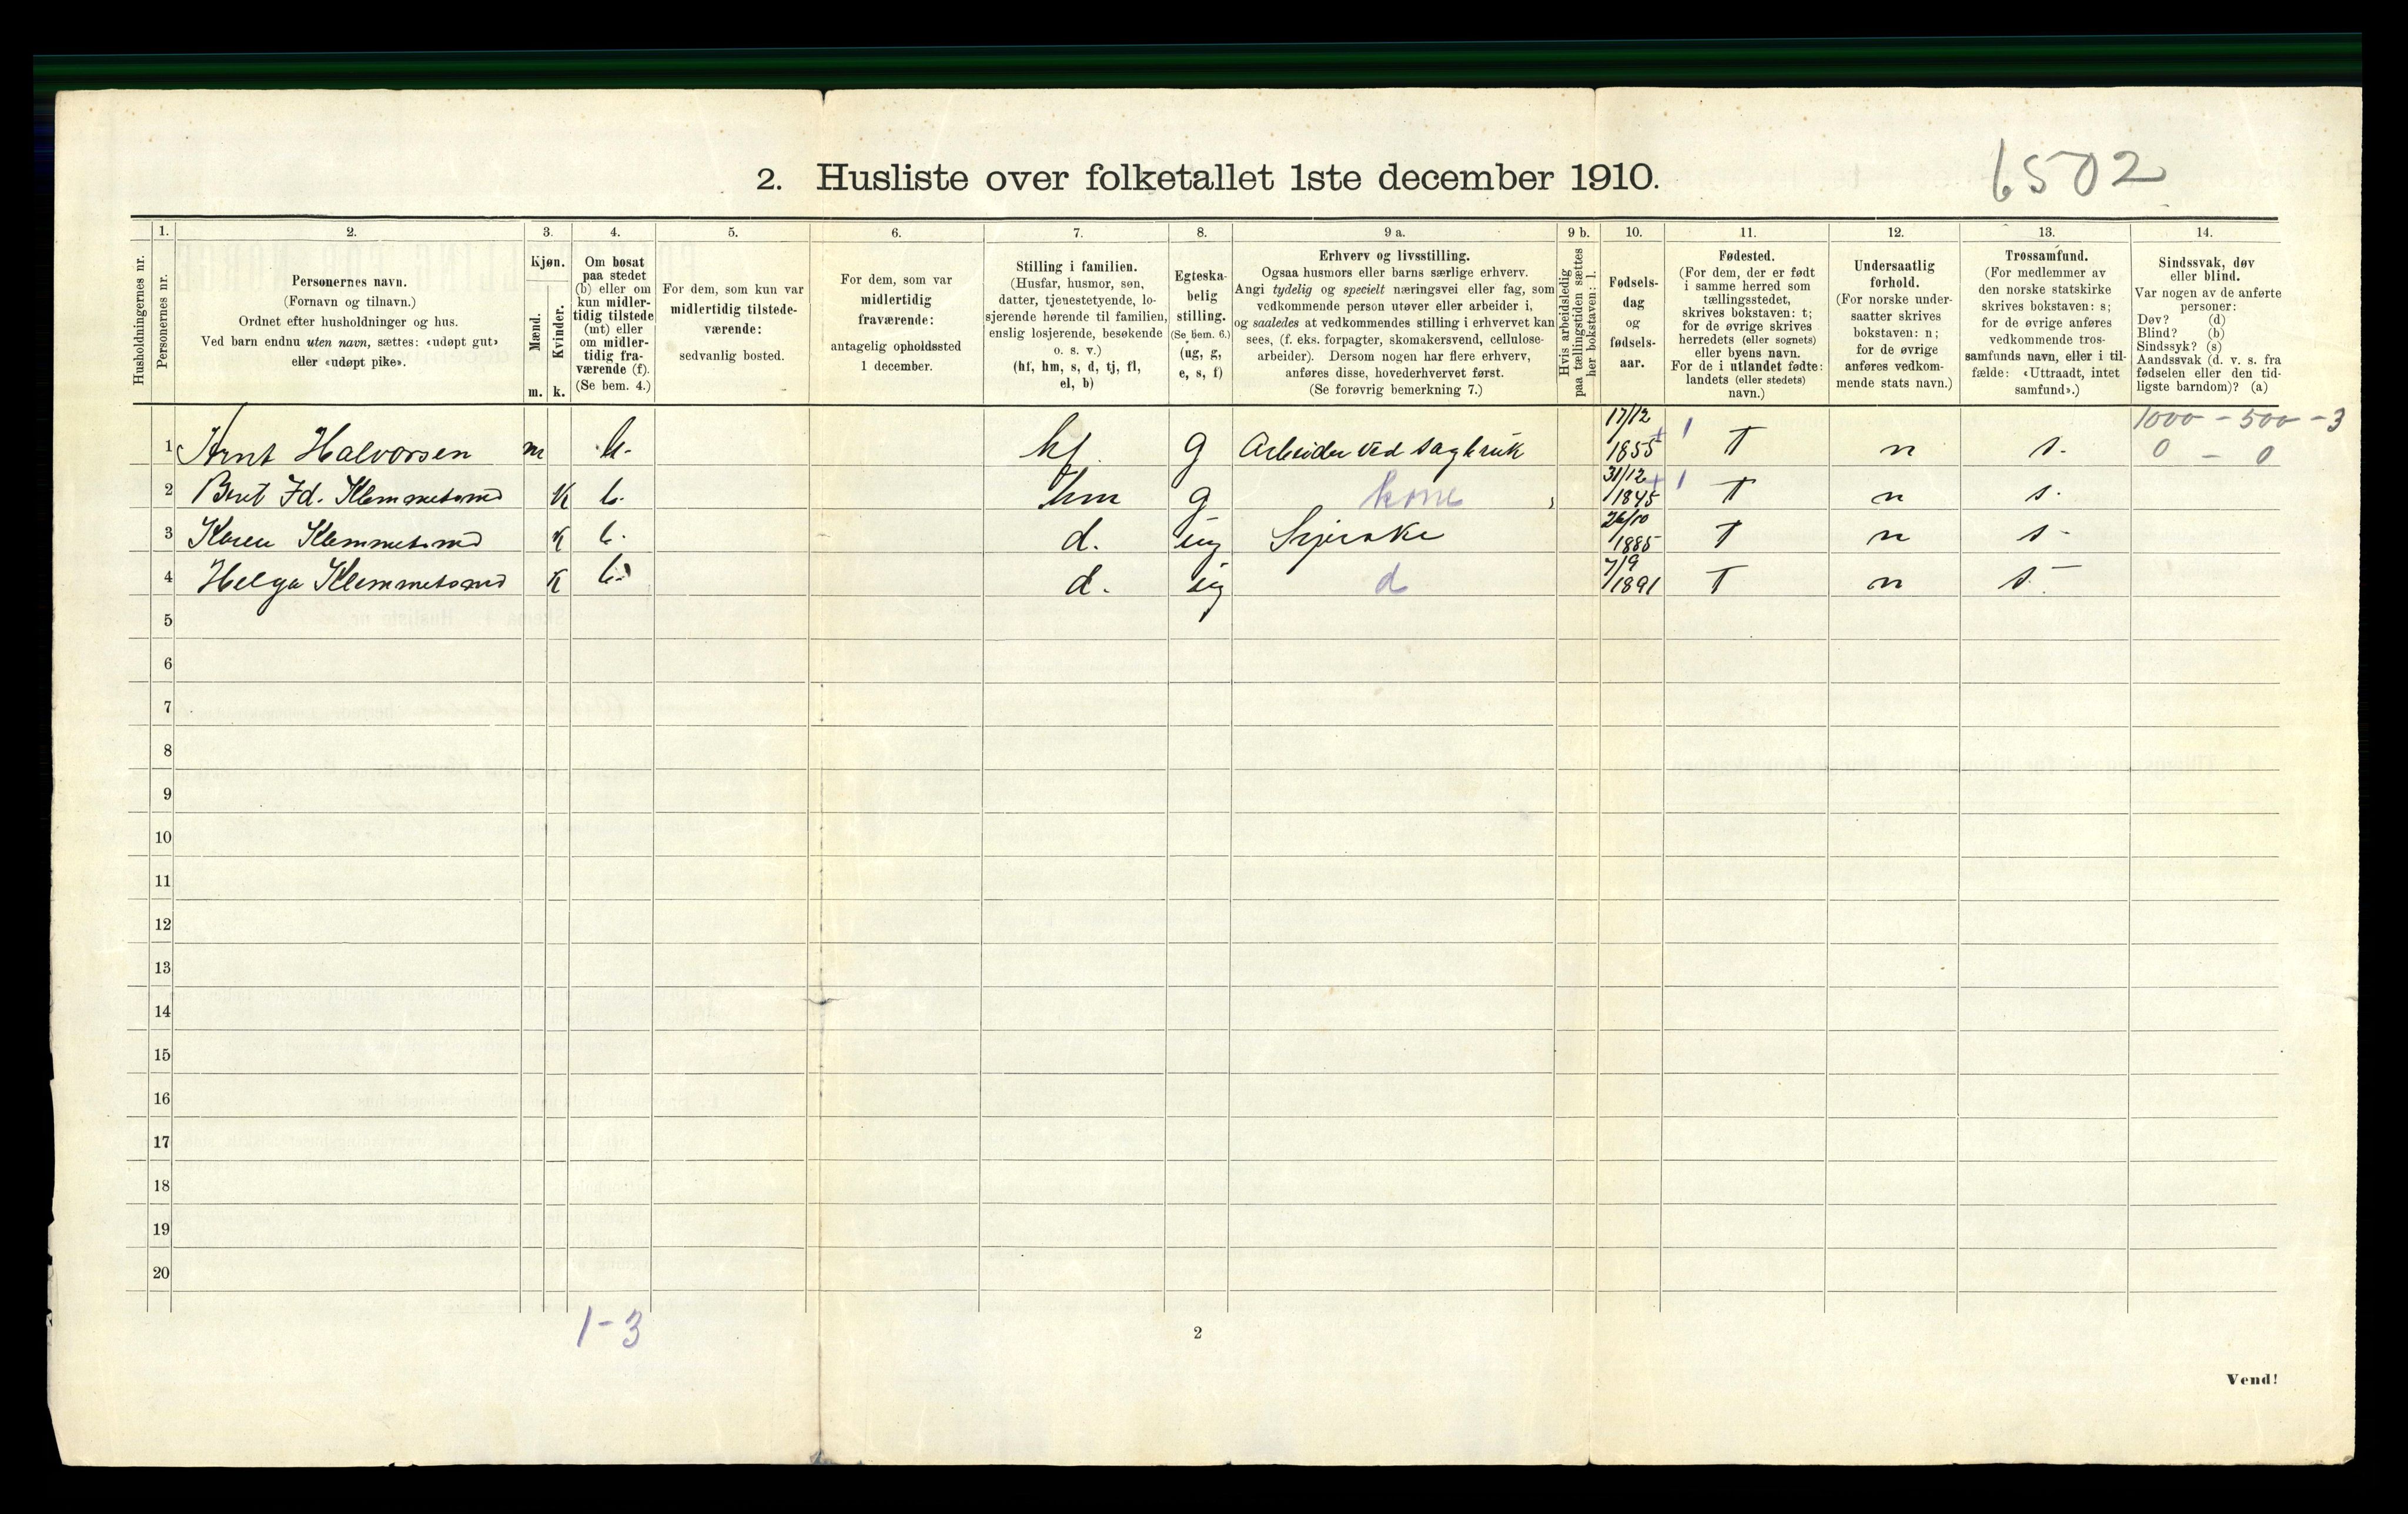 2. Husliste over folketallet 1ste december 1910.
6502
Husholdningernes nr.
1. Personernes nr.
2. Personernes navn.
(Fornavn og tilnavn.)
Ordnet efter husholdninger og hus.
Ved barn endnu uten navn, sættes: «udøpt gut»
eller «udøpt pike».
3. Kjøn.
Mænd. m.
Kvinder. k.
4. Om bosat
paa stedet
(b) eller om
kun midler-
tidig tilstede
(mt) eller
om midler-
tidig fra-
værende (f).
(Se bem. 4.)
5. For dem, som kun var
midlertidig tilstede-
værende:
sedvanlig bosted.
6. For dem, som var
midlertidig
fraværende:
antagelig opholdssted
1 december.
7. Stilling i familien.
(Husfar, husmor, søn,
datter, tjenestetyende, lo-
sjerende hørende til familien,
enslig losjerende, besøkende
o. s. v.)
(hf, hm, s, d, tj, fl,
el, b)
8. Egteska-
belig
stilling.
(Se bem. 6.)
(ug, g,
e, s, f)
9 a. Erhverv og livsstilling.
Ogsaa husmors eller barns særlige erhverv.
Angi tydelig og specielt næringsvei eller fag, som
vedkommende person utøver eller arbeider i,
og saaledes at vedkommendes stilling i erhvervet kan
sees, (f. eks. forpagter, skomakersvend, cellulose-
arbeider). Dersom nogen har flere erhverv,
anføres disse, hovederhvervet først.
(Se forøvrig bemerkning 7.)
9 b. Hvis arbeidsledig
paa tællingstiden sættes
her bokstaven: l.
10. Fødsels-
dag
og
fødsels-
aar.
11. Fødested.
(For dem, der er født
i samme herred som
tællingsstedet,
skrives bokstaven: t;
for de øvrige skrives
herredets (eller sognets)
eller byens navn.
For de i utlandet fødte:
landets (eller stedets)
navn.)
12. Undersaatlig
forhold.
(For norske under-
saatter skrives
bokstaven: n;
for de øvrige
anføres vedkom-
mende stats navn.)
13. Trossamfund.
(For medlemmer av
den norske statskirke
skrives bokstaven: s;
for de øvrige anføres
vedkommende tros-
samfunds navn, eller i til-
fælde: «Uttraadt, intet
samfund».)
14. Sindssvak, døv
eller blind.
Var nogen av de anførte
personer:
Døv? (d)
Blind? (b)
Sindssyk? (s)
Aandssvak (d. v. s. fra
fødselen eller den tid-
ligste barndom)? (a)
1000 - 500 - 3
1 Arnt Halvorsen m b. hf. g Arbeider ved sagbruk 17/12 1855 T n s. 0 - 0
2 Berit Jd. Klemmetsend K b. hm g kone 31/12 1845 T n s.
3 Karen Klemmetsend K b. d. ug Syerske 26/10 1885 T n s
4 Helga Klemmetsend K b. d. ug d 7/9 1891 T n s.
5
6
7
8
9
10
11
12
13
14
15
16
17
18
19
20
1-3
2
Vend!